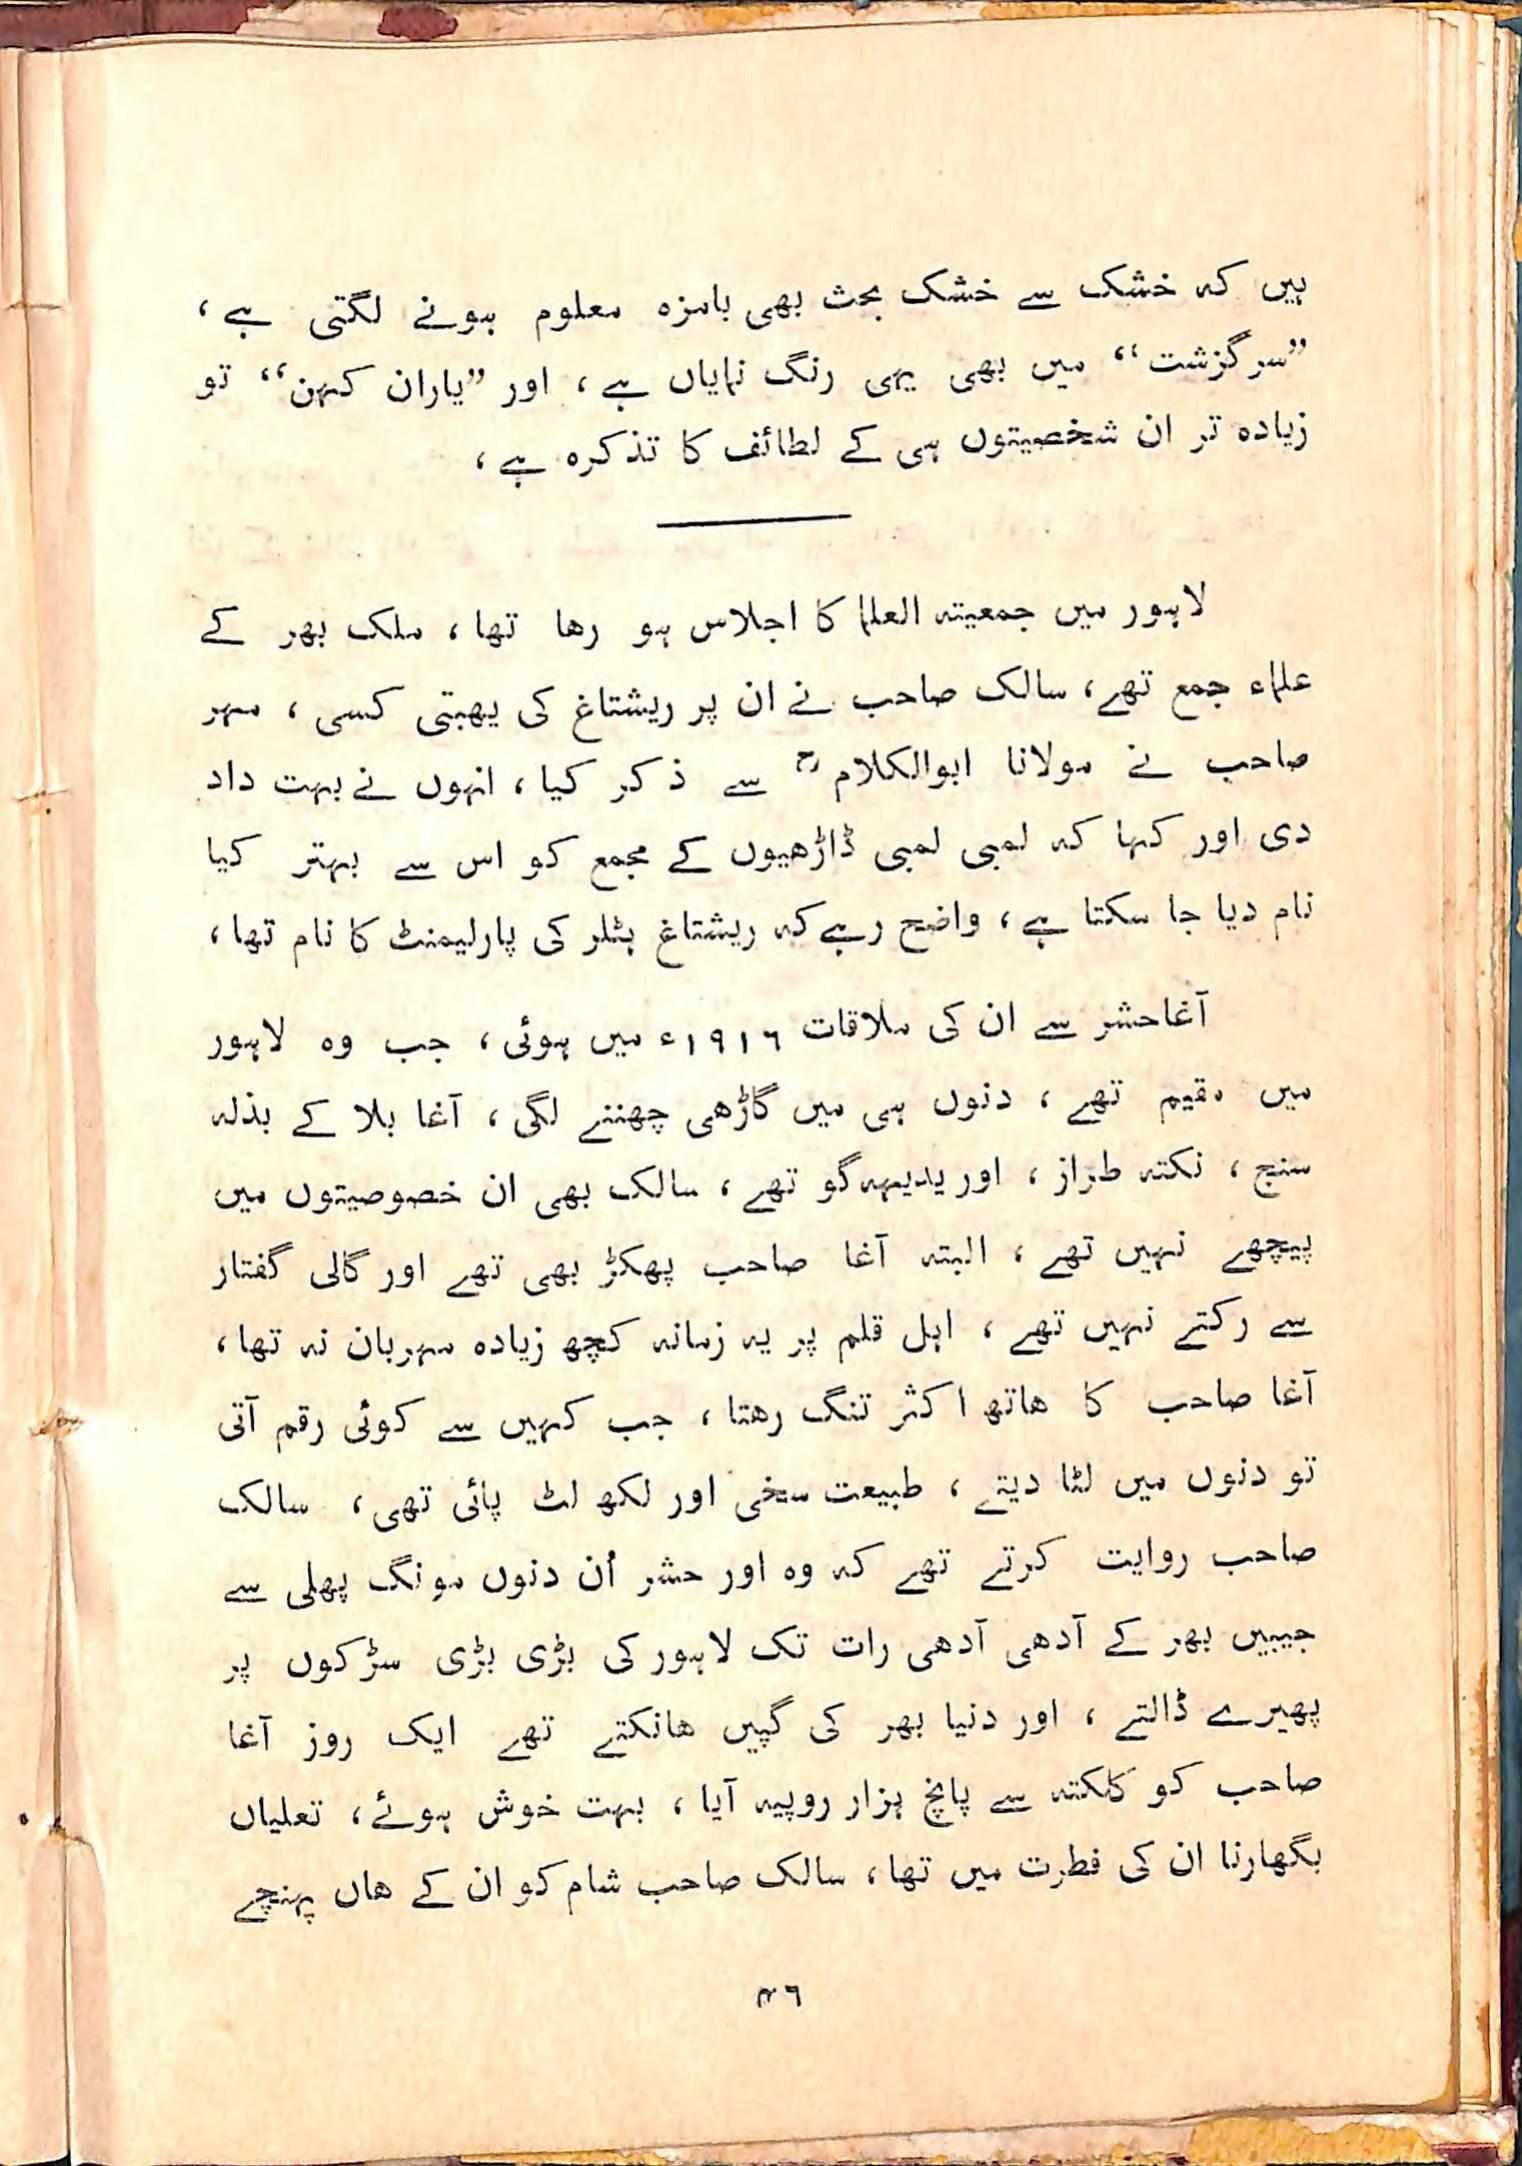 ہیں کہ خشک سے خشک بحث بھی بامزہ معلوم ہونے لگتی ہے ،
”سرگزشت“ میں بھی یہی رنگ نمایاں ہے ، اور ”یاران کہن“ تو
زیادہ تر ان شخصیتوں ہی کے لطائف کا تذکرہ ہے ،
لاہور میں جمعیتہ العلما کا اجلاس ہو رھا تھا ، ملک بھر کے
علماء جمع تھے ، سالک صاحب نے ان پر ریشتاغ کی پھبتی کسی ، مہر
صاحب نے مولانا ابوالکلامؒ سے ذکر کیا ، انہوں نے بہت داد
دی اور کہا کہ لمبی لمبی ڈاڑھیوں کے مجمع کو اس سے بہتر کیا
نام دیا جا سکتا ہے ، واضح رہے کہ ریشتاغ ہٹلر کی پارلیمنٹ کا نام تھا ،
آغاحشر سے ان کی ملاقات ۱۹۱۶ء میں ہوئی ، جب وہ لاہور
میں مقیم تھے ، دنوں ہی میں گاڑھی چھننے لگی ، آغا بلا کے بذلہ
سنج ، نکتہ طراز ، اور یدیہہ گو تھے ، سالک بھی ان خصوصیتوں میں
پیچھے نہیں تھے ، البتہ آغا صاحب پھکڑ بھی تھے اور گالی گفتار
سے رکتے نہیں تھے ، اہل قلم پر یہ زمانہ کچھ زیادہ مہربان نہ تھا ،
آغا صاحب کا ھاتھ اکثر تنگ رھتا ، جب کہیں سے کوئی رقم آتی
تو دنوں میں لٹا دیتے ، طبیعت سخی اور لکھ لٹ پائی تھی ، سالک
صاحب روایت کرتے تھے کہ وہ اور حشر اُن دنوں مونگ پھلی سے
جیبیں بھر کے آدھی آدھی رات تک لاہور کی بڑی بڑی سڑکوں پر
پھیرے ڈالتے ، اور دنیا بھر کی گپیں ھانکتے تھے ایک روز آغا
صاحب کو کلکتہ سے پانچ ہزار روپیہ آیا ، بہت خوش ہوئے ، تعلیاں
بگھارنا ان کی فطرت میں تھا ، سالک صاحب شام کو ان کے ھاں پہنچے
۴۶